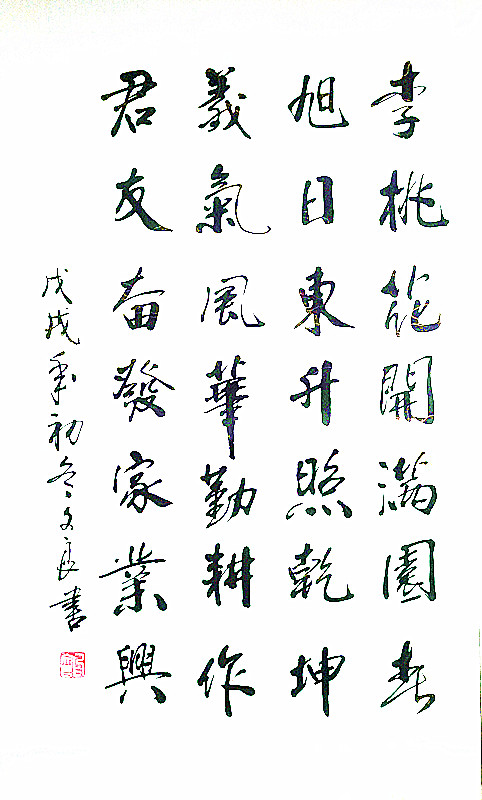 李桃花開滿園春
旭日東升照乾坤
義氣風華勤耕作
君友奋發家業興
戊戌季初冬文良書